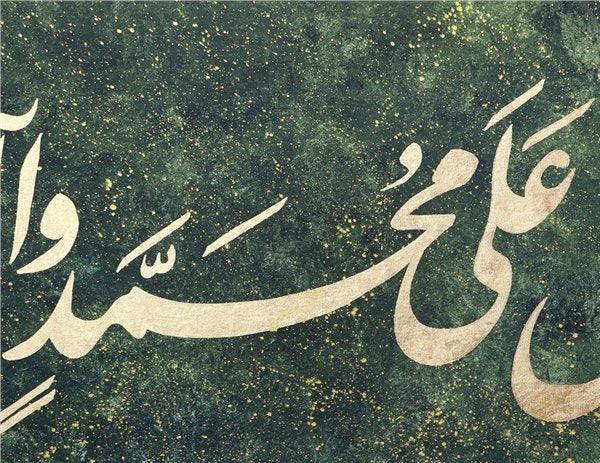 عَلَى مُحَمَّدٍ وَآ